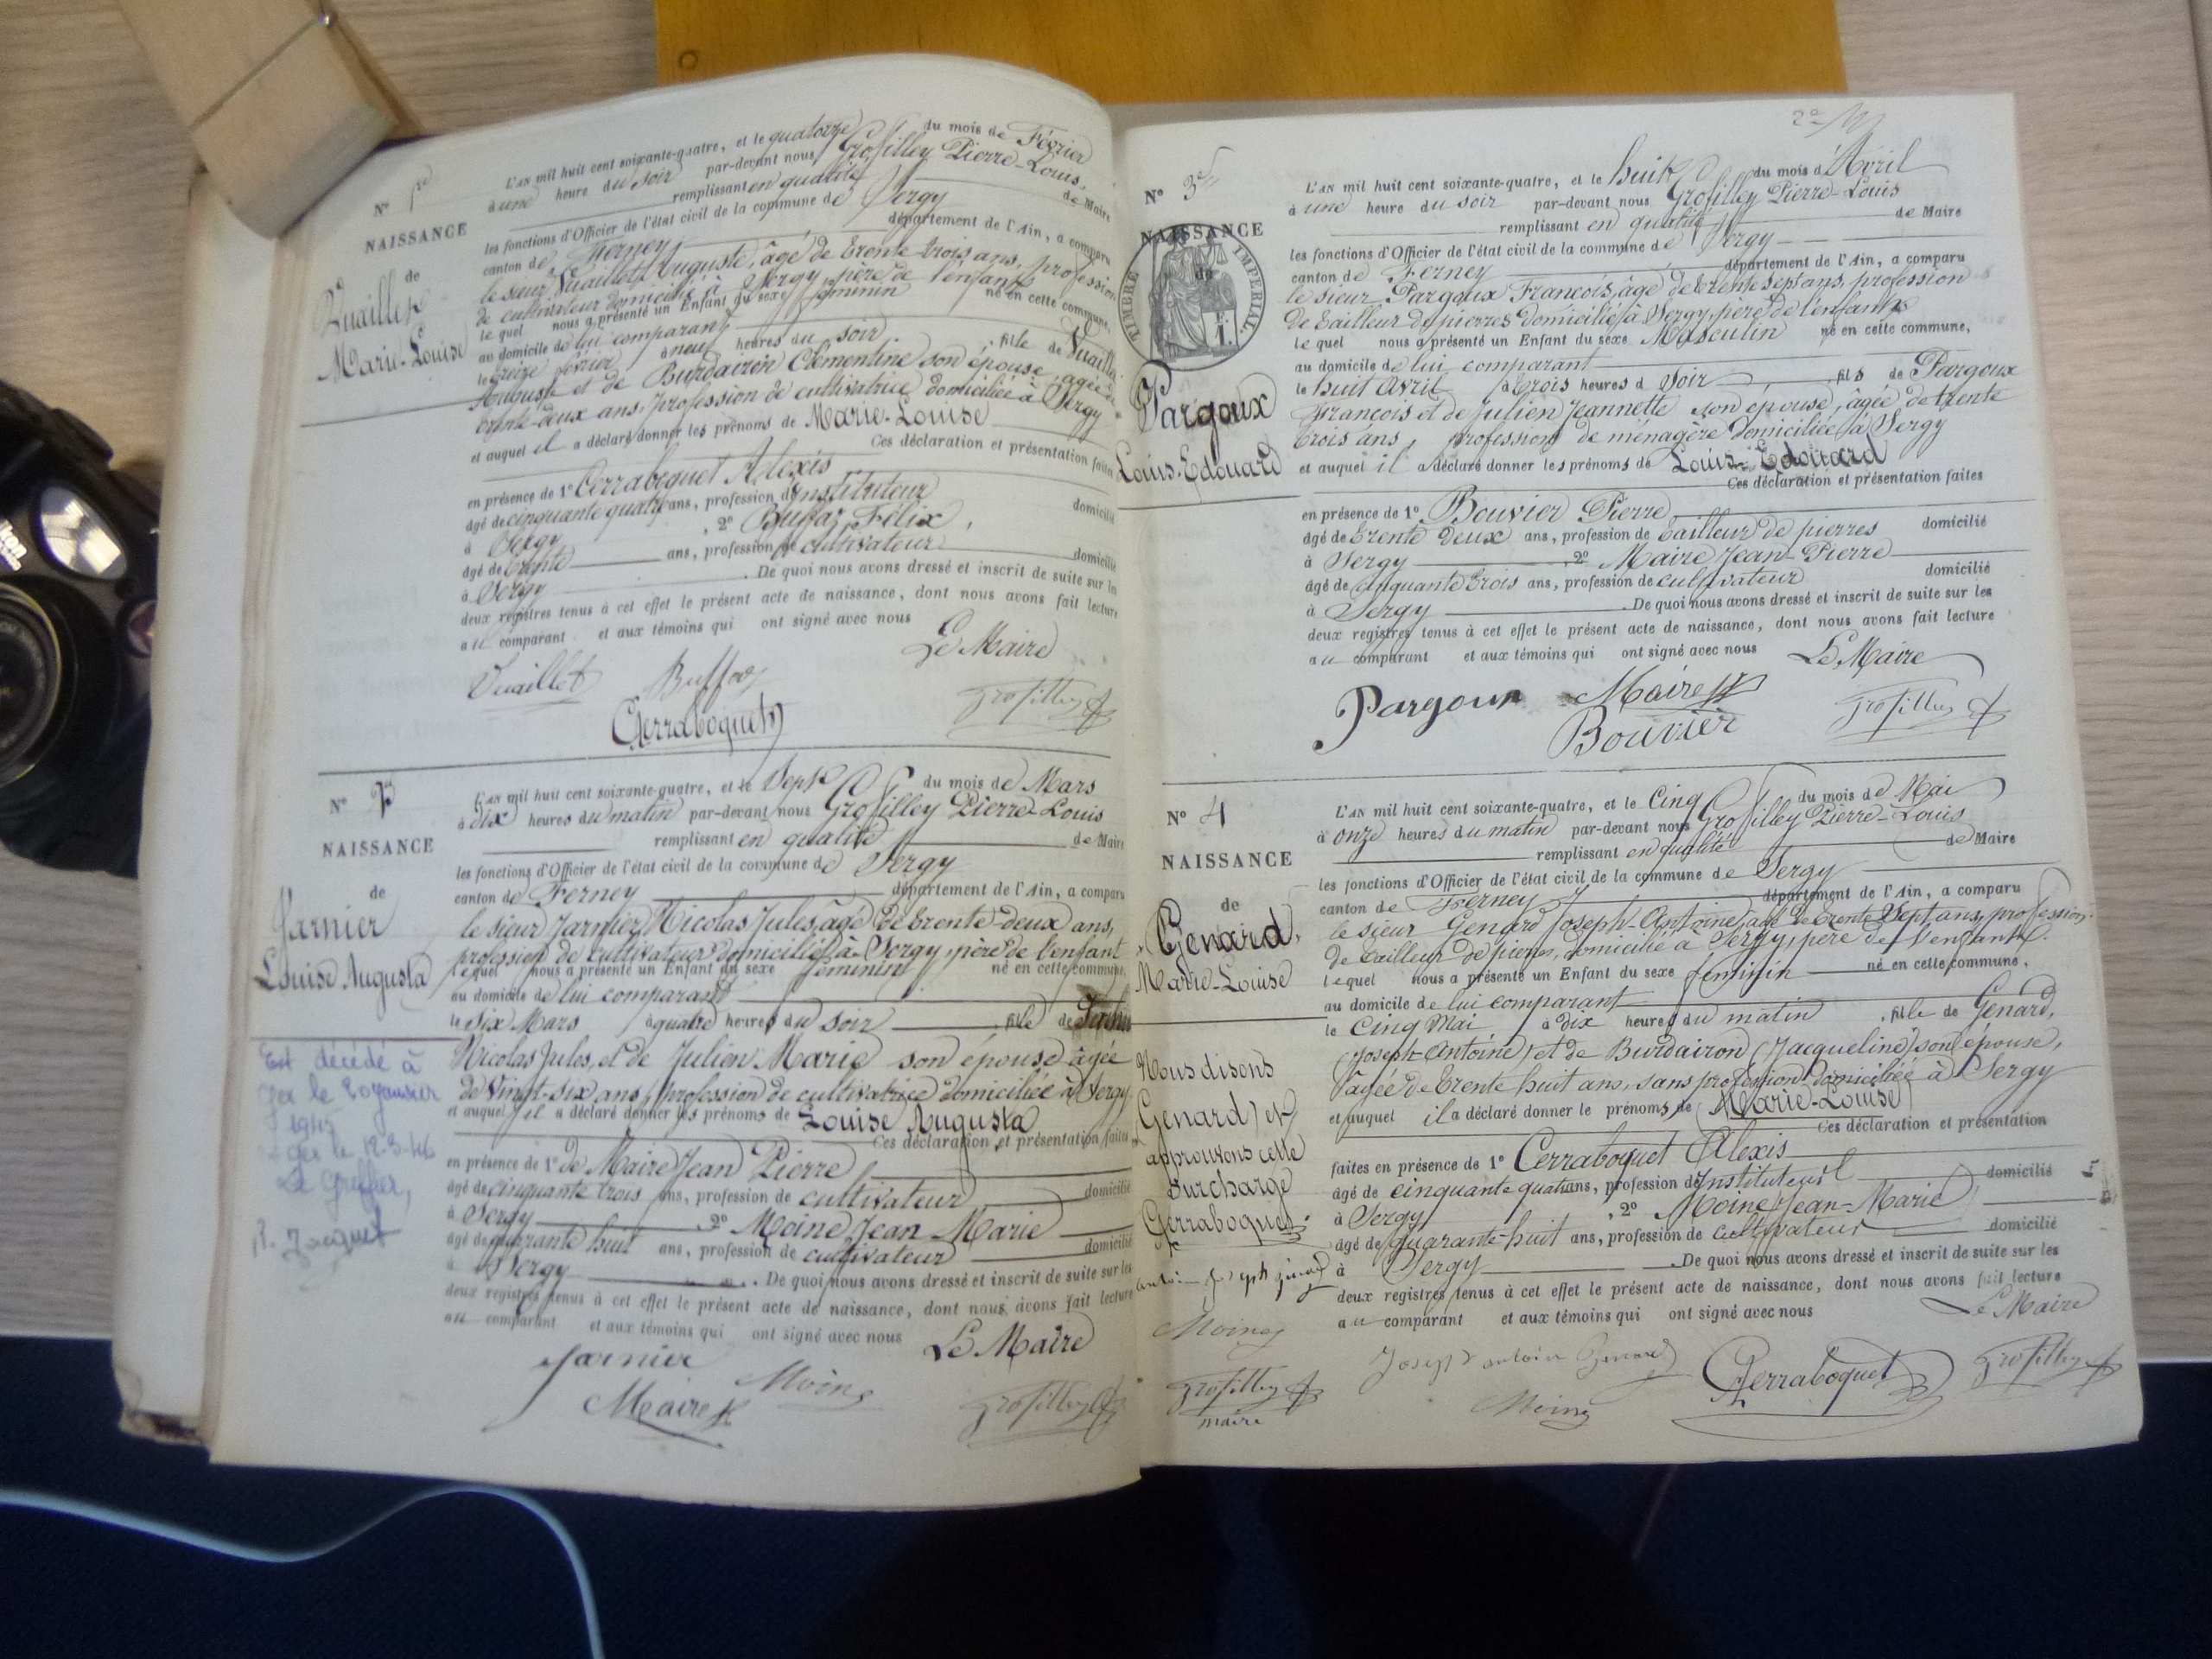 N° 1er
NAISSANCE
de
Vuaillet
Marie-Louise
L'AN mil huit cent soixante-quatre, et le quatorze du mois de Février
à une heure du soir par-devant nous Grosfilley Pierre-Louis,
remplissant en qualité de Maire
les fonctions d'Officier de l'état civil de la commune de Sergy
canton de Ferney département de l'Ain, a comparu
le sieur Vuaillet Auguste, âgé de trente trois ans, profession
de cultivateur domicilié à Sergy, père de l'enfant
le quel nous a présenté un Enfant du sexe féminin né en cette commune,
au domicile de lui comparant
le treize février à neuf heures du soir, fille de Vuaillet
Auguste et de Burdairon Clémentine son épouse, agée de
trente-deux ans, profession de cultivatrice domiciliée à Sergy
et auquel il a déclaré donner les prénoms de Marie-Louise
Ces déclaration et présentation faites
en présence de 1° Cerraboquet Alexis
âgé de cinquante quatre ans, profession d'Instituteur domicilié
à Sergy, 2° Buffaz Félix,
âgé de trente ans, profession de cultivateur domicilié
à Sergy. De quoi nous avons dressé et inscrit de suite sur les
deux registres tenus à cet effet le présent acte de naissance, dont nous avons fait lecture
au comparant et aux témoins qui ont signé avec nous
Le Maire
Vuaillet Buffaz
Cerraboquet
Grosfilley
N° 2
NAISSANCE
de
Jarnier
Louise Augusta
Est décédé à
Gex le
1945
Gex le 12-3-46
Le Greffier,
L'AN mil huit cent soixante-quatre, et le Sept du mois de Mars
à dix heures du matin par-devant nous Grosfilley Pierre-Louis
remplissant en qualité de Maire
les fonctions d'Officier de l'état civil de la commune de Sergy
canton de Ferney département de l'Ain, a comparu
le sieur Jarnier Nicolas Jules, âgé de trente-deux ans,
profession de cultivateur domicilié à Sergy, père de l'enfant
le quel nous a présenté un Enfant du sexe féminin né en cette commune,
au domicile de lui comparant
le six Mars à quatre heures du soir, fille de Jarnier
Nicolas Jules, et de Julien Marie son épouse âgée
de Vingt-six ans, profession de cultivatrice domiciliée à Sergy
et auquel il a déclaré donner les prénoms de Louise Augusta
Ces déclaration et présentation faites
en présence de 1° de Maire Jean Pierre
âgé de cinquante trois ans, profession de cultivateur domicilié
à Sergy 2° Moine Jean Marie
âgé de quarante huit ans, profession de cultivateur domicilié
à Sergy. De quoi nous avons dressé et inscrit de suite sur les
deux registres tenus à cet effet le présent acte de naissance, dont nous avons fait lecture
au comparant et aux témoins qui ont signé avec nous
Le Maire
Jarnier Moine
Maire
Grosfilley
N° 3
NAISSANCE
de
TIMBRE IMPERIAL
Pargoux
Louis-Edouard
L'AN mil huit cent soixante-quatre, et le huit du mois d'Avril
à une heure du soir par-devant nous Grosfilley Pierre-Louis
remplissant en qualité de Maire
les fonctions d'Officier de l'état civil de la commune de Sergy
canton de Ferney département de l'Ain, a comparu
le sieur Pargoux François, âgé de trente sept ans, profession
de tailleur de pierres domicilié à Sergy, père de l'enfant
le quel nous a présenté un Enfant du sexe Masculin né en cette commune,
au domicile de lui comparant
le huit Avril à trois heures d soir, fils de Pargoux
François et de Julien Jeannette son épouse, âgée de trente
trois ans, profession de ménagère domiciliée à Sergy
et auquel il a déclaré donner les prénoms de Louis-Edouard
Ces déclaration et présentation faites
en présence de 1° Bouvier Pierre
âgé de trente deux ans, profession de tailleur de pierres domicilié
à Sergy 2° Maire Jean-Pierre
âgé de cinquante trois ans, profession de cultivateur domicilié
à Sergy. De quoi nous avons dressé et inscrit de suite sur les
deux registres tenus à cet effet le présent acte de naissance, dont nous avons fait lecture
au comparant et aux témoins qui ont signé avec nous
Le Maire
Pargoux Maire
Bouvier
Grosfilley
N° 4
NAISSANCE
de
Genard,
Marie-Louise
Nous disons
Genard, et
approuvons cette
surcharge
Cerraboquet
antoine joseph genard
Moine
Grosfilley
maire
L'AN mil huit cent soixante-quatre, et le Cinq du mois de Mai
à onze heures du matin par-devant nous Grosfilley Pierre-Louis
remplissant en qualité de Maire
les fonctions d'Officier de l'état civil de la commune de Sergy
canton de Ferney département de l'Ain, a comparu
le sieur Genard Joseph-Antoine, âgé de trente Sept ans, profession
de tailleur de pierres, domicilié à Sergy, père de l'enfant
le quel nous a présenté un Enfant du sexe féminin né en cette commune,
au domicile de lui comparant
le Cinq Mai à dix heures du matin, fille de Genard,
(Joseph-Antoine) et de Burdairon (Jacqueline) son épouse,
âgée de trente huit ans, sans profession domiciliée à Sergy
et auquel il a déclaré donner le prénoms de (Marie-Louise)
Ces déclaration et présentation
faites en présence de 1° Cerraboquet Alexis
âgé de cinquante quatre ans, profession d'Instituteur domicilié
à Sergy, 2° Moine Jean-Marie
âgé de quarante-huit ans, profession de cultivateur domicilié
à Sergy. De quoi nous avons dressé et inscrit de suite sur les
deux registres tenus à cet effet le présent acte de naissance, dont nous avons fait lecture
au comparant et aux témoins qui ont signé avec nous
Le Maire
Joseph antoine Genard Cerraboquet Grosfilley
Moine